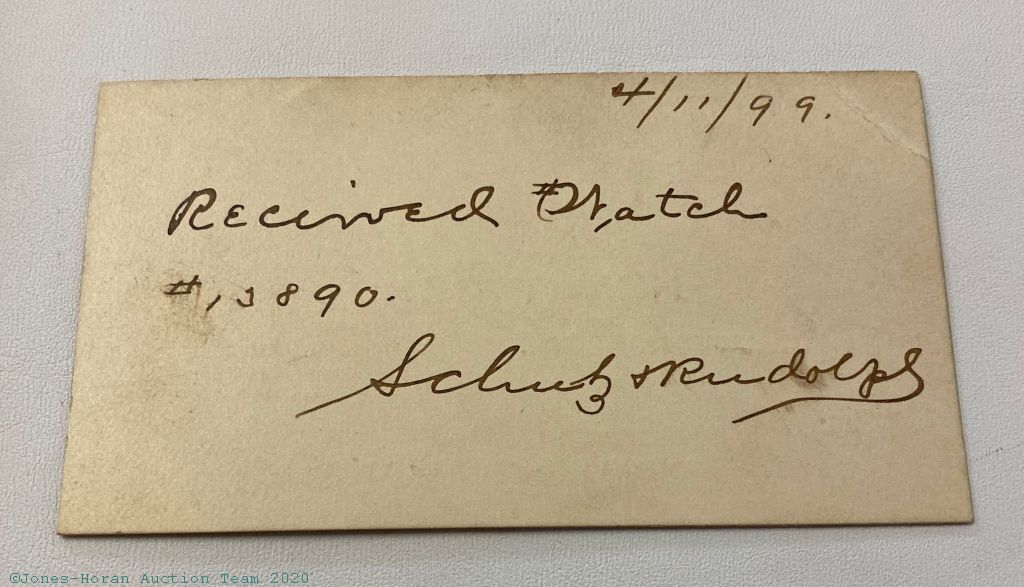 4/11/99.
Received Watch
#13890.
Schutz & Rudolph
©Jones-Horan Auction Team 2020